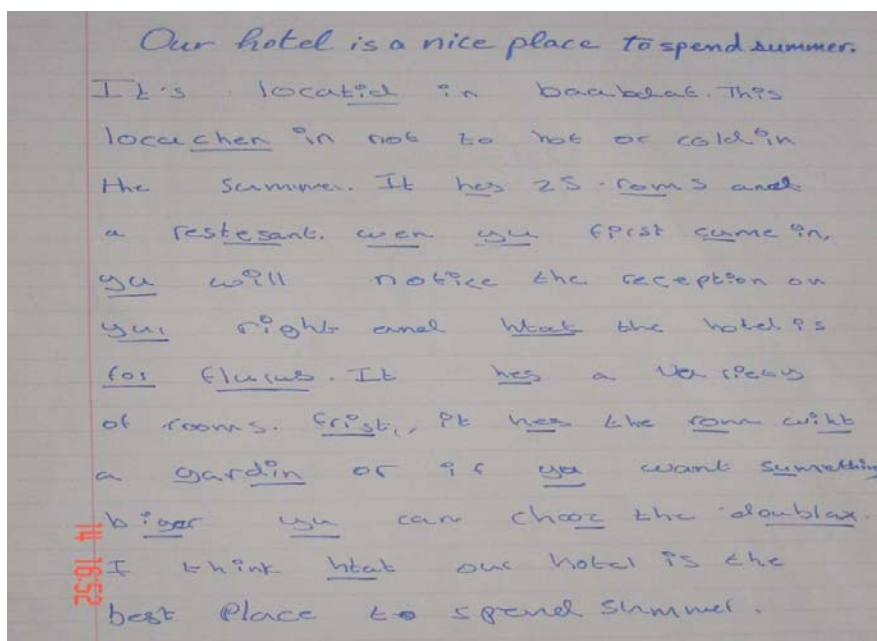 Our hotel is a nice place to spend summer.
It's locatid in baabdat. This
locachen in not to hot or cold in
the summer. It hes 25 roms and
a restesant. wen yu first cume in,
yu will notice the reception on
yur right and htat the hotel is
for flurus. It hes a variety
of rooms. frist, it hes the rom wiht
a gardin or if yu want sumething
biger yu can chooz the doublax.
I think htat our hotel is the
best place to spend summer.
14 16:52